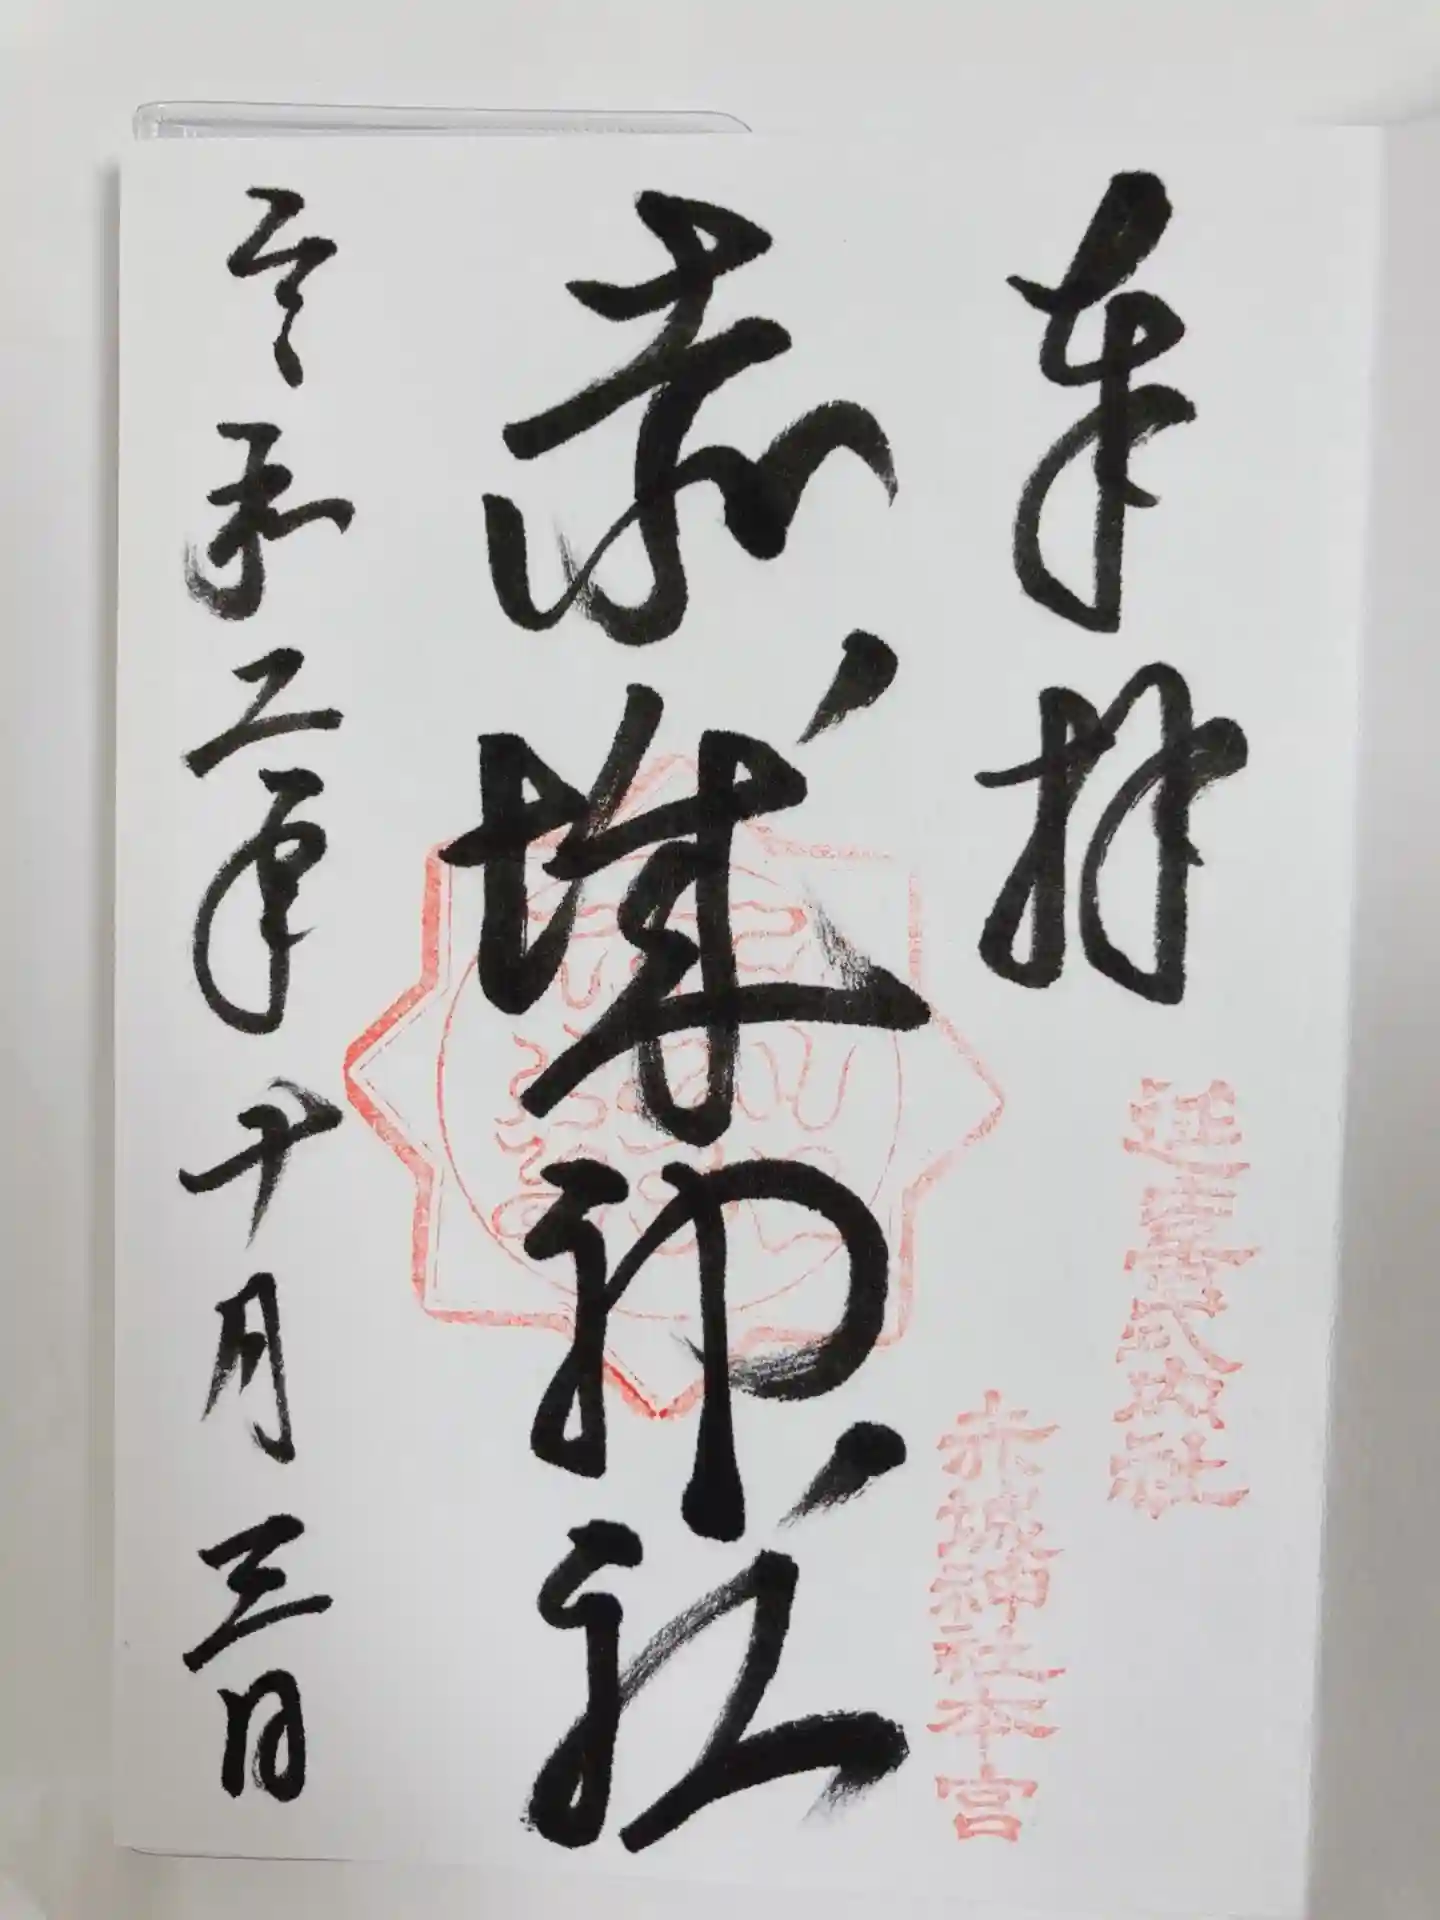 奉拝
延喜式内社
赤城神社本宮
赤城神社
令和二年十月三日